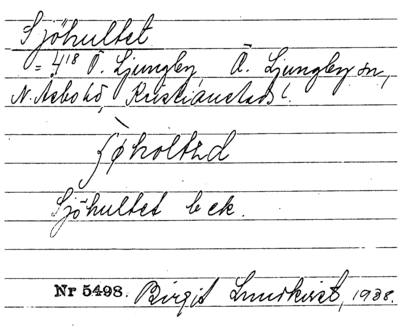 Sjöhultet
= 4¹⁸ Ö. Ljungby, Ö. Ljungby sn,
N. Åsbo hd, Kristianstads l.
ʃø̀holtəd
Sjöhultet beck.
Nr 5498. Birgit Lundkvist, 1938.